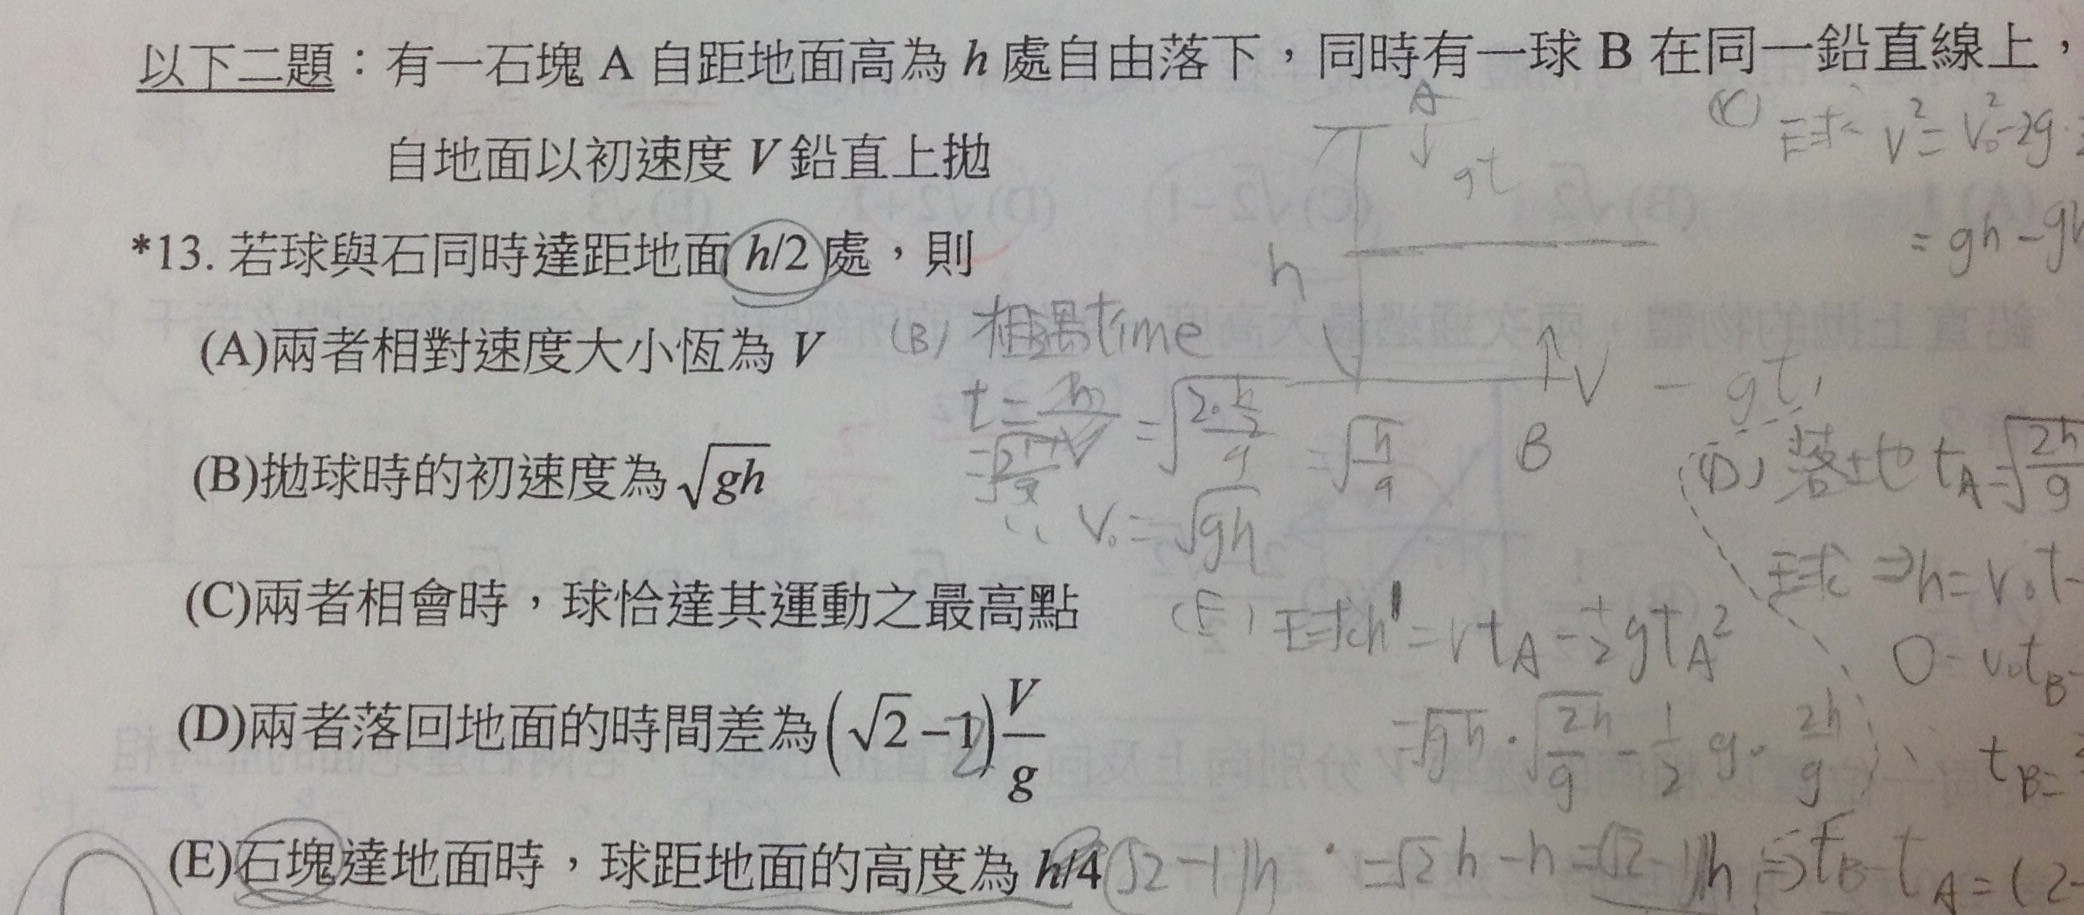 以下二題：有一石塊 A 自距地面高為 h 處自由落下，同時有一球 B 在同一鉛直線上，
自地面以初速度 V 鉛直上拋
*13. 若球與石同時達距地面 h/2 處，則
(A)兩者相對速度大小恆為 V
(B)拋球時的初速度為 √gh
(C)兩者相會時，球恰達其運動之最高點
(D)兩者落回地面的時間差為 (√2 −1) V/g
(E)石塊達地面時，球距地面的高度為 h/4
(√2-1)h
A
gt
h
V - gt
B
(B) 相遇time
= √(2·h/2 / g) = √(h/g)
∴ V₀ = √gh
(C) 球 V² = V₀² - 2g
= gh - gh
(D) 落地 t_A = √(2h/g)
球 ⇒ h = V₀t -
0 = V₀t_B -
t_B =
⇒ t_B - t_A = (2-
(E) 球 h' = Vt_A - ½gt_A²
= √gh · √(2h/g) - ½ g · 2h/g
= √2h - h = (√2-1)h